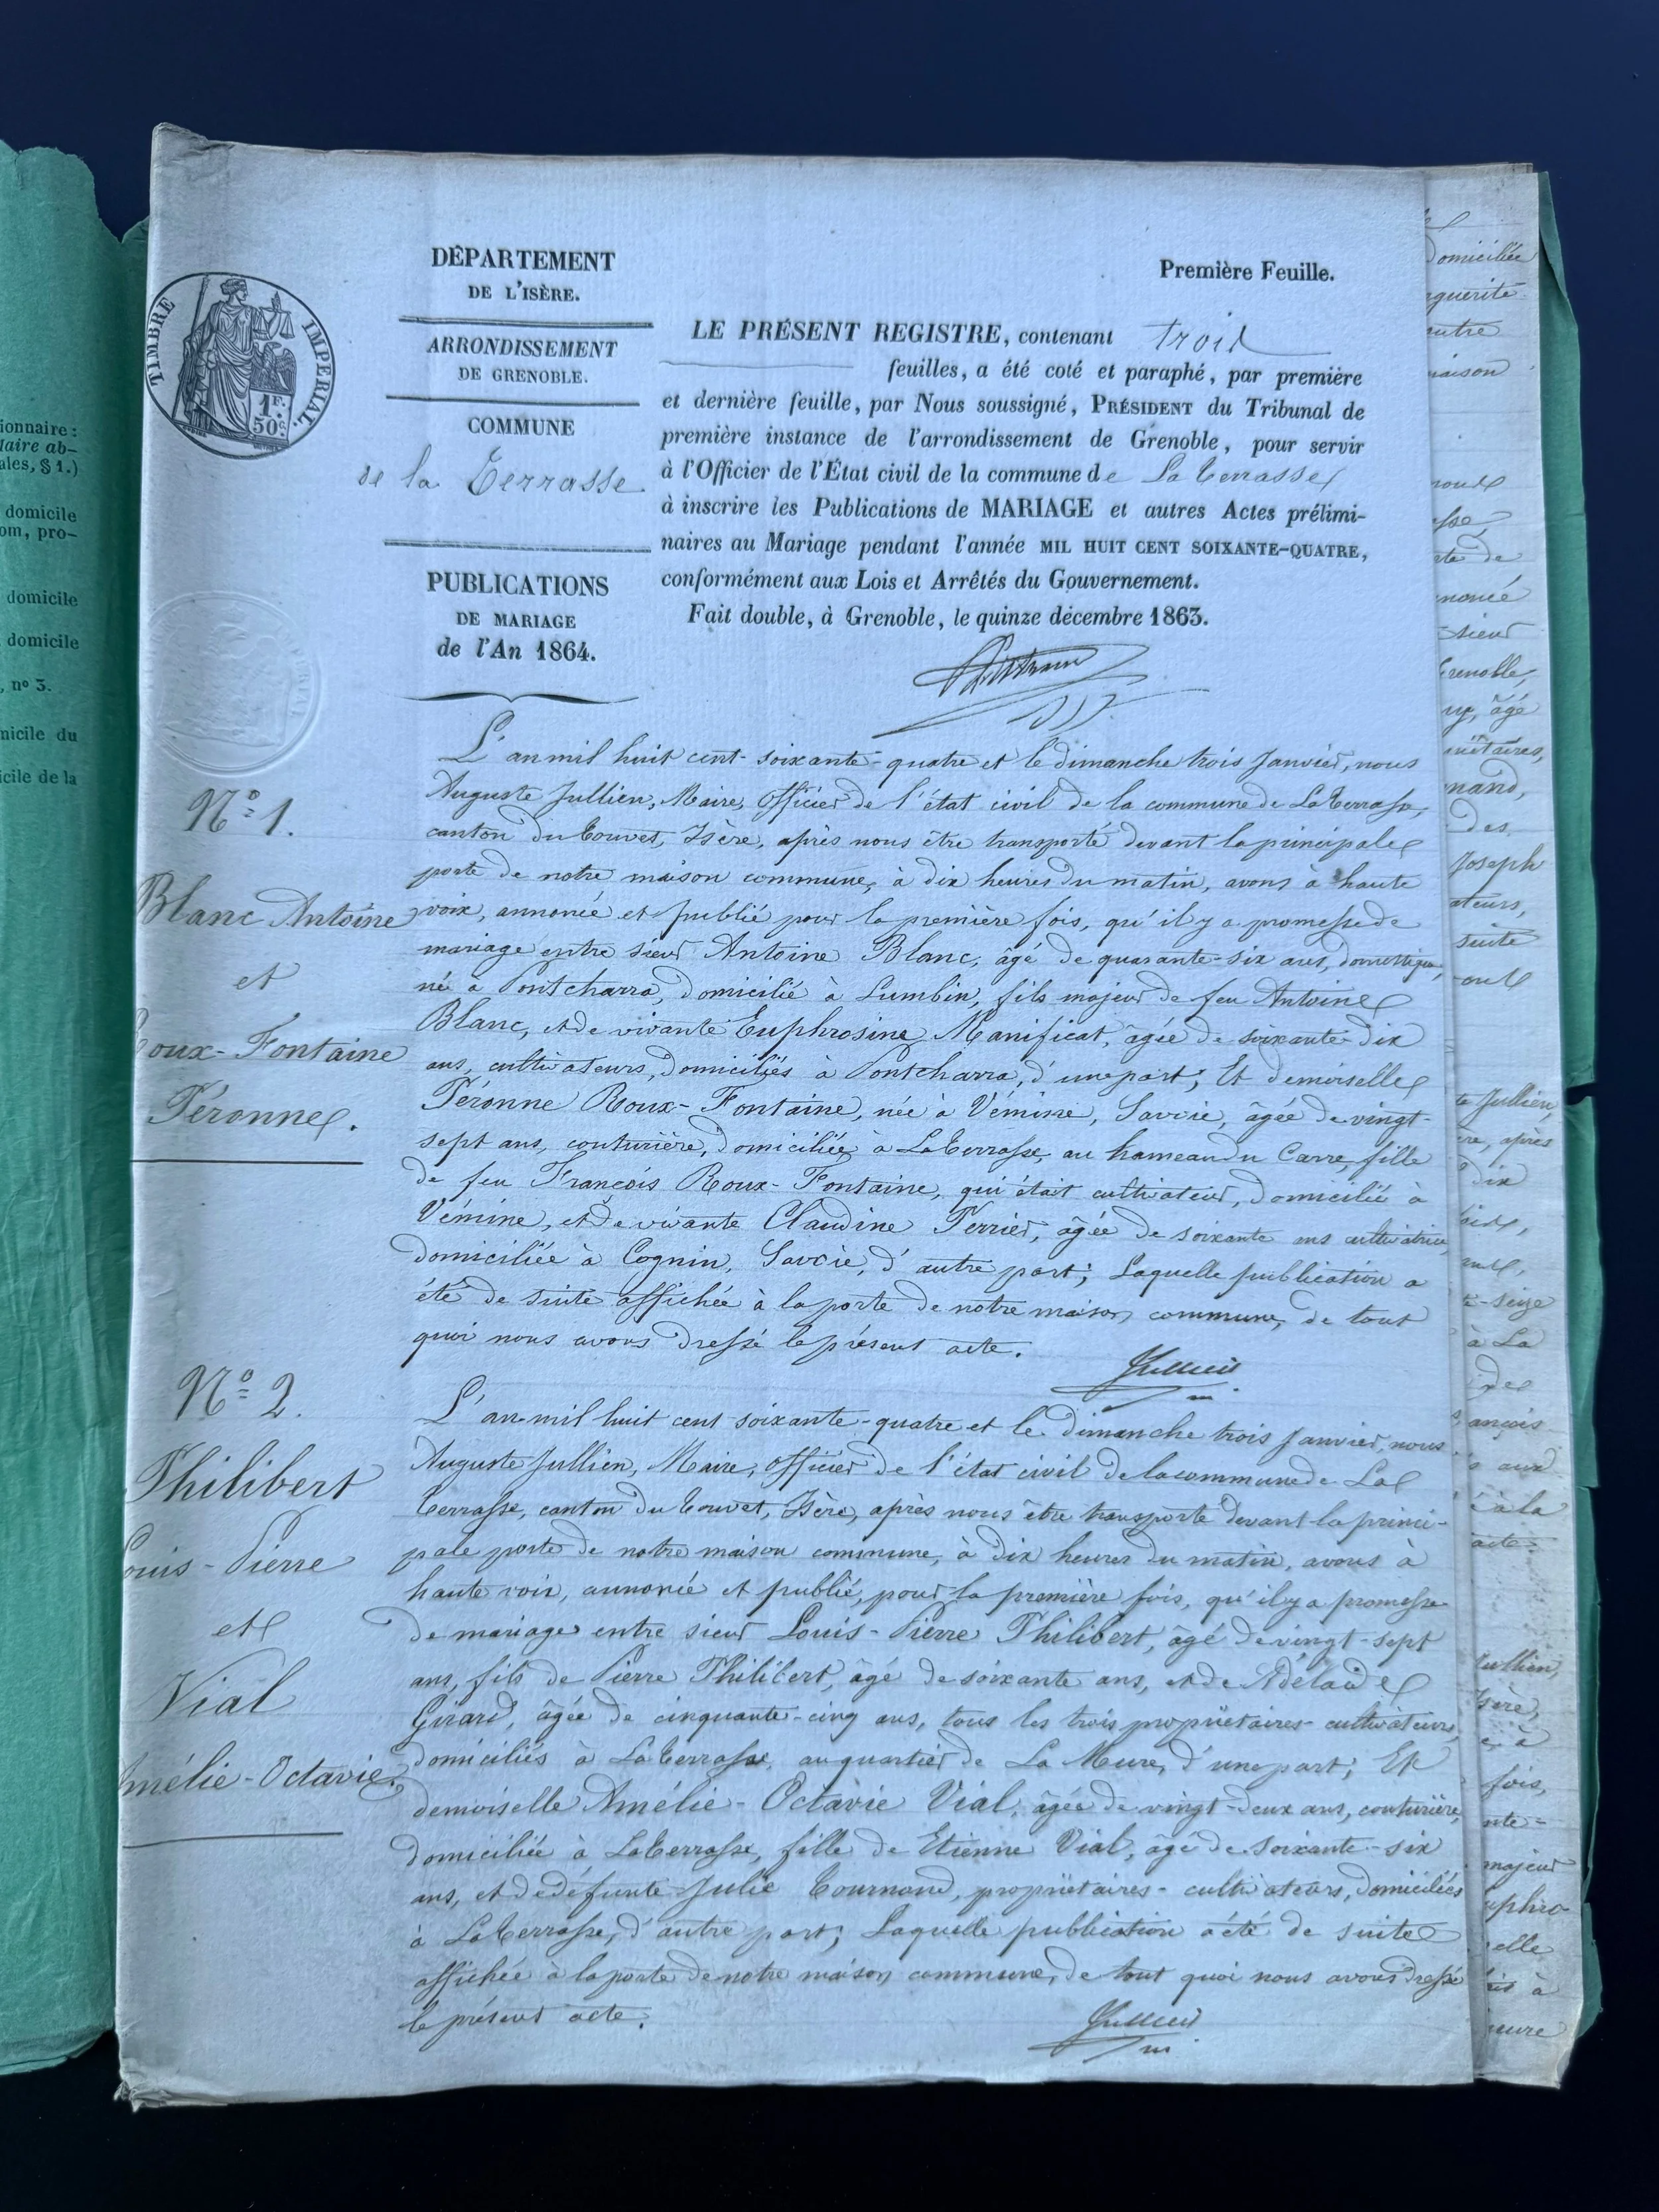 DÉPARTEMENT
DE L'ISÈRE.
ARRONDISSEMENT
DE GRENOBLE.
COMMUNE
de la Terrasse
PUBLICATIONS
DE MARIAGE
de l'An 1864.
TIMBRE IMPERIAL
1 F.
50 c.
Première Feuille.
LE PRÉSENT REGISTRE, contenant trois
feuilles, a été coté et paraphé, par première
et dernière feuille, par Nous soussigné, PRÉSIDENT du Tribunal de
première instance de l'arrondissement de Grenoble, pour servir
à l'Officier de l'État civil de la commune de La Terrasse
à inscrire les Publications de MARIAGE et autres Actes prélimi-
naires au Mariage pendant l'année MIL HUIT CENT SOIXANTE-QUATRE,
conformément aux Lois et Arrêtés du Gouvernement.
Fait double, à Grenoble, le quinze décembre 1863.
N° 1.
Blanc Antoine
et
Roux-Fontaine
Péronne.
L'an mil huit cent soixante-quatre et le dimanche trois Janvier, nous
Auguste Jullien, Maire, officier de l'état civil de la commune de La Terrasse,
canton du Touvet, Isère, après nous être transporté devant la principale
porte de notre maison commune, à dix heures du matin, avons à haute
voix, annoncé et publié pour la première fois, qu'il y a promesse de
mariage entre sieur Antoine Blanc, âgé de quarante-six ans, domestique,
né à Pontcharra, domicilié à Lumbin, fils majeur de feu Antoine
Blanc, et de vivante Euphrosine Manificat, âgée de soixante-dix
ans, cultivateurs, domiciliés à Pontcharra, d'une part; Et demoiselle
Péronne Roux-Fontaine, née à Vémine, Savoie, âgée de vingt-
sept ans, couturière, domiciliée à La Terrasse, au hameau du Carre, fille
de feu François Roux-Fontaine, qui était cultivateur, domicilié à
Vémine, et de vivante Claudine Perrier, âgée de soixante ans cultivatrice,
domiciliée à Cognin, Savoie, d'autre part; Laquelle publication a
été de suite affichée à la porte de notre maison commune, de tout
quoi nous avons dressé le présent acte.
Jullien
N° 2.
Philibert
Louis-Pierre
et
Vial
Amélie-Octavie.
L'an mil huit cent soixante-quatre et le dimanche trois Janvier, nous
Auguste Jullien, Maire, officier de l'état civil de la commune de La
Terrasse, canton du Touvet, Isère, après nous être transporté devant la princi-
pale porte de notre maison commune, à dix heures du matin, avons à
haute voix, annoncé et publié, pour la première fois, qu'il y a promesse
de mariage entre sieur Louis-Pierre Philibert, âgé de vingt-sept
ans, fils de Pierre Philibert, âgé de soixante ans, et de Adélaïde
Girard, âgée de cinquante-cinq ans, tous les trois propriétaires-cultivateurs,
domiciliés à La Terrasse, au quartier de La Mure, d'une part; Et
demoiselle Amélie-Octavie Vial, âgée de vingt-deux ans, couturière,
domiciliée à La Terrasse, fille de Etienne Vial, âgé de soixante-six
ans, et de défunte Julie Tournoud, propriétaires-cultivateurs, domiciliés
à La Terrasse, d'autre part; Laquelle publication a été de suite
affichée à la porte de notre maison commune, de tout quoi nous avons dressé
le présent acte.
Jullien